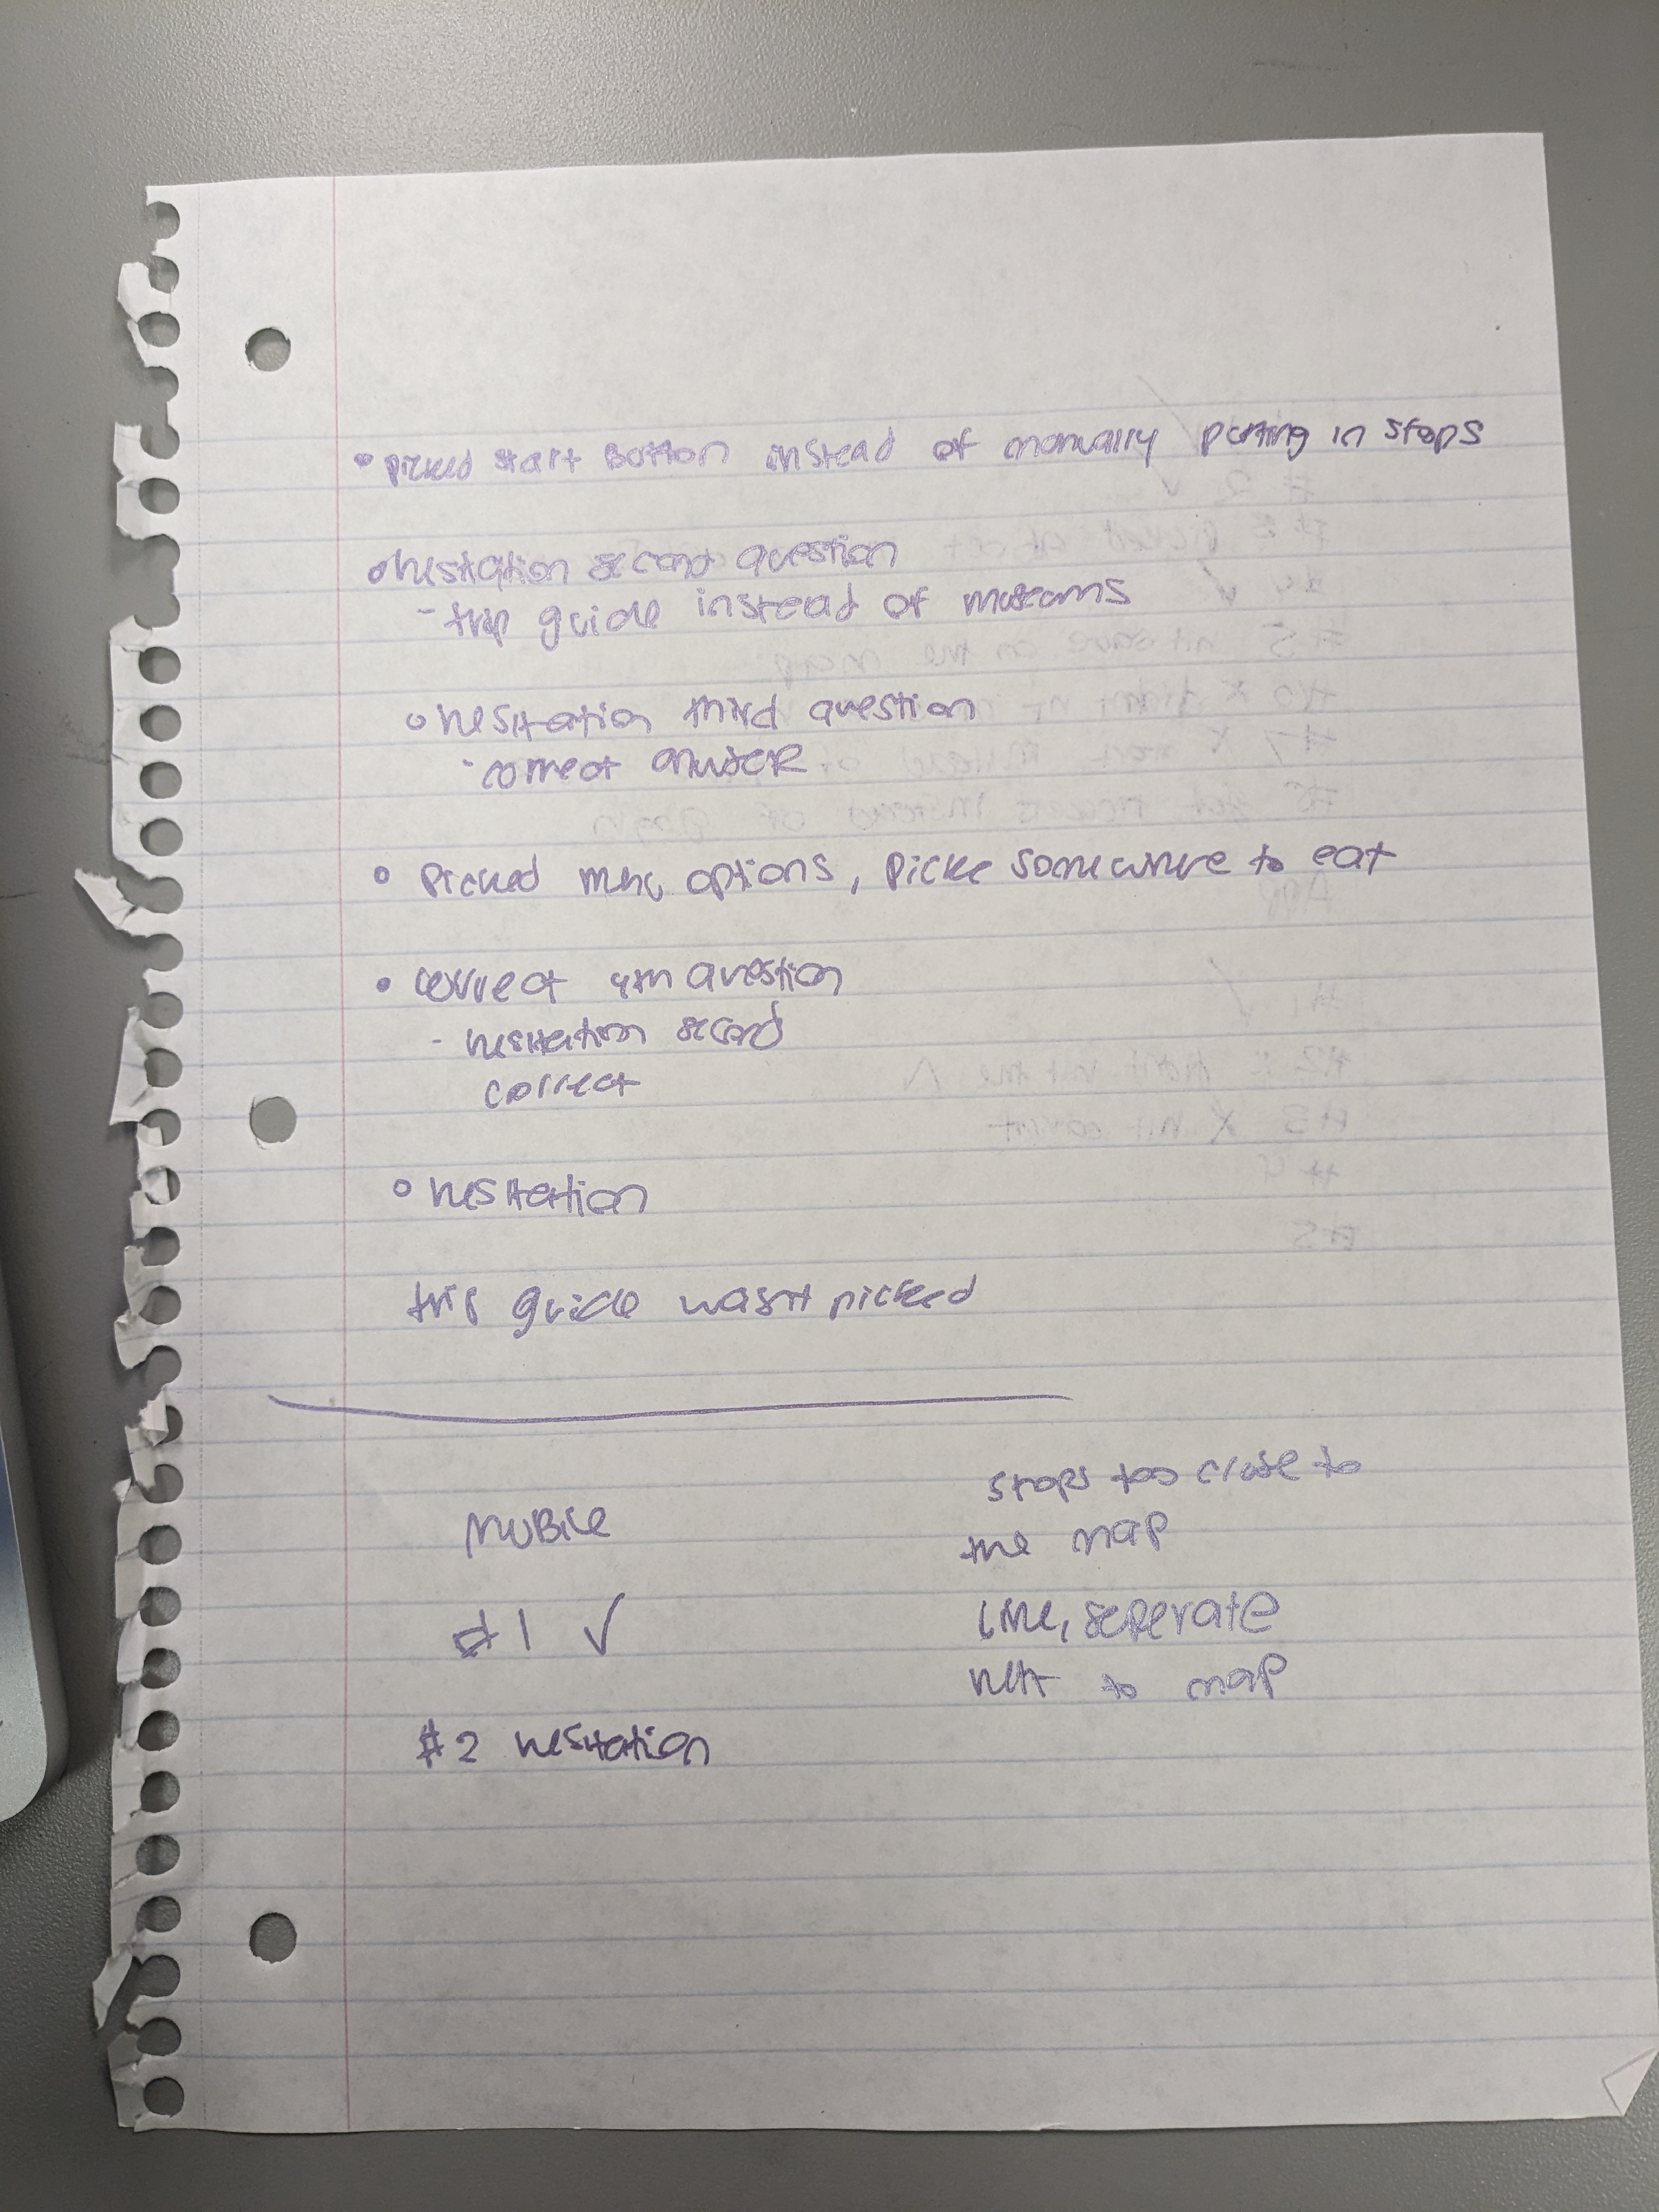 • picked start Button instead of manually putting in stops
• hesitation second question
- trip guide instead of museums
• hesitation third question
- correct answer
• Picked menu options, picke somewhere to eat
• correct 4th question
- hesitation second
correct
• hesitation
trip guide wasn't picked
Mobile
#1 ✓
#2 hesitation
stops too close to
the map
line, seperate
next to map